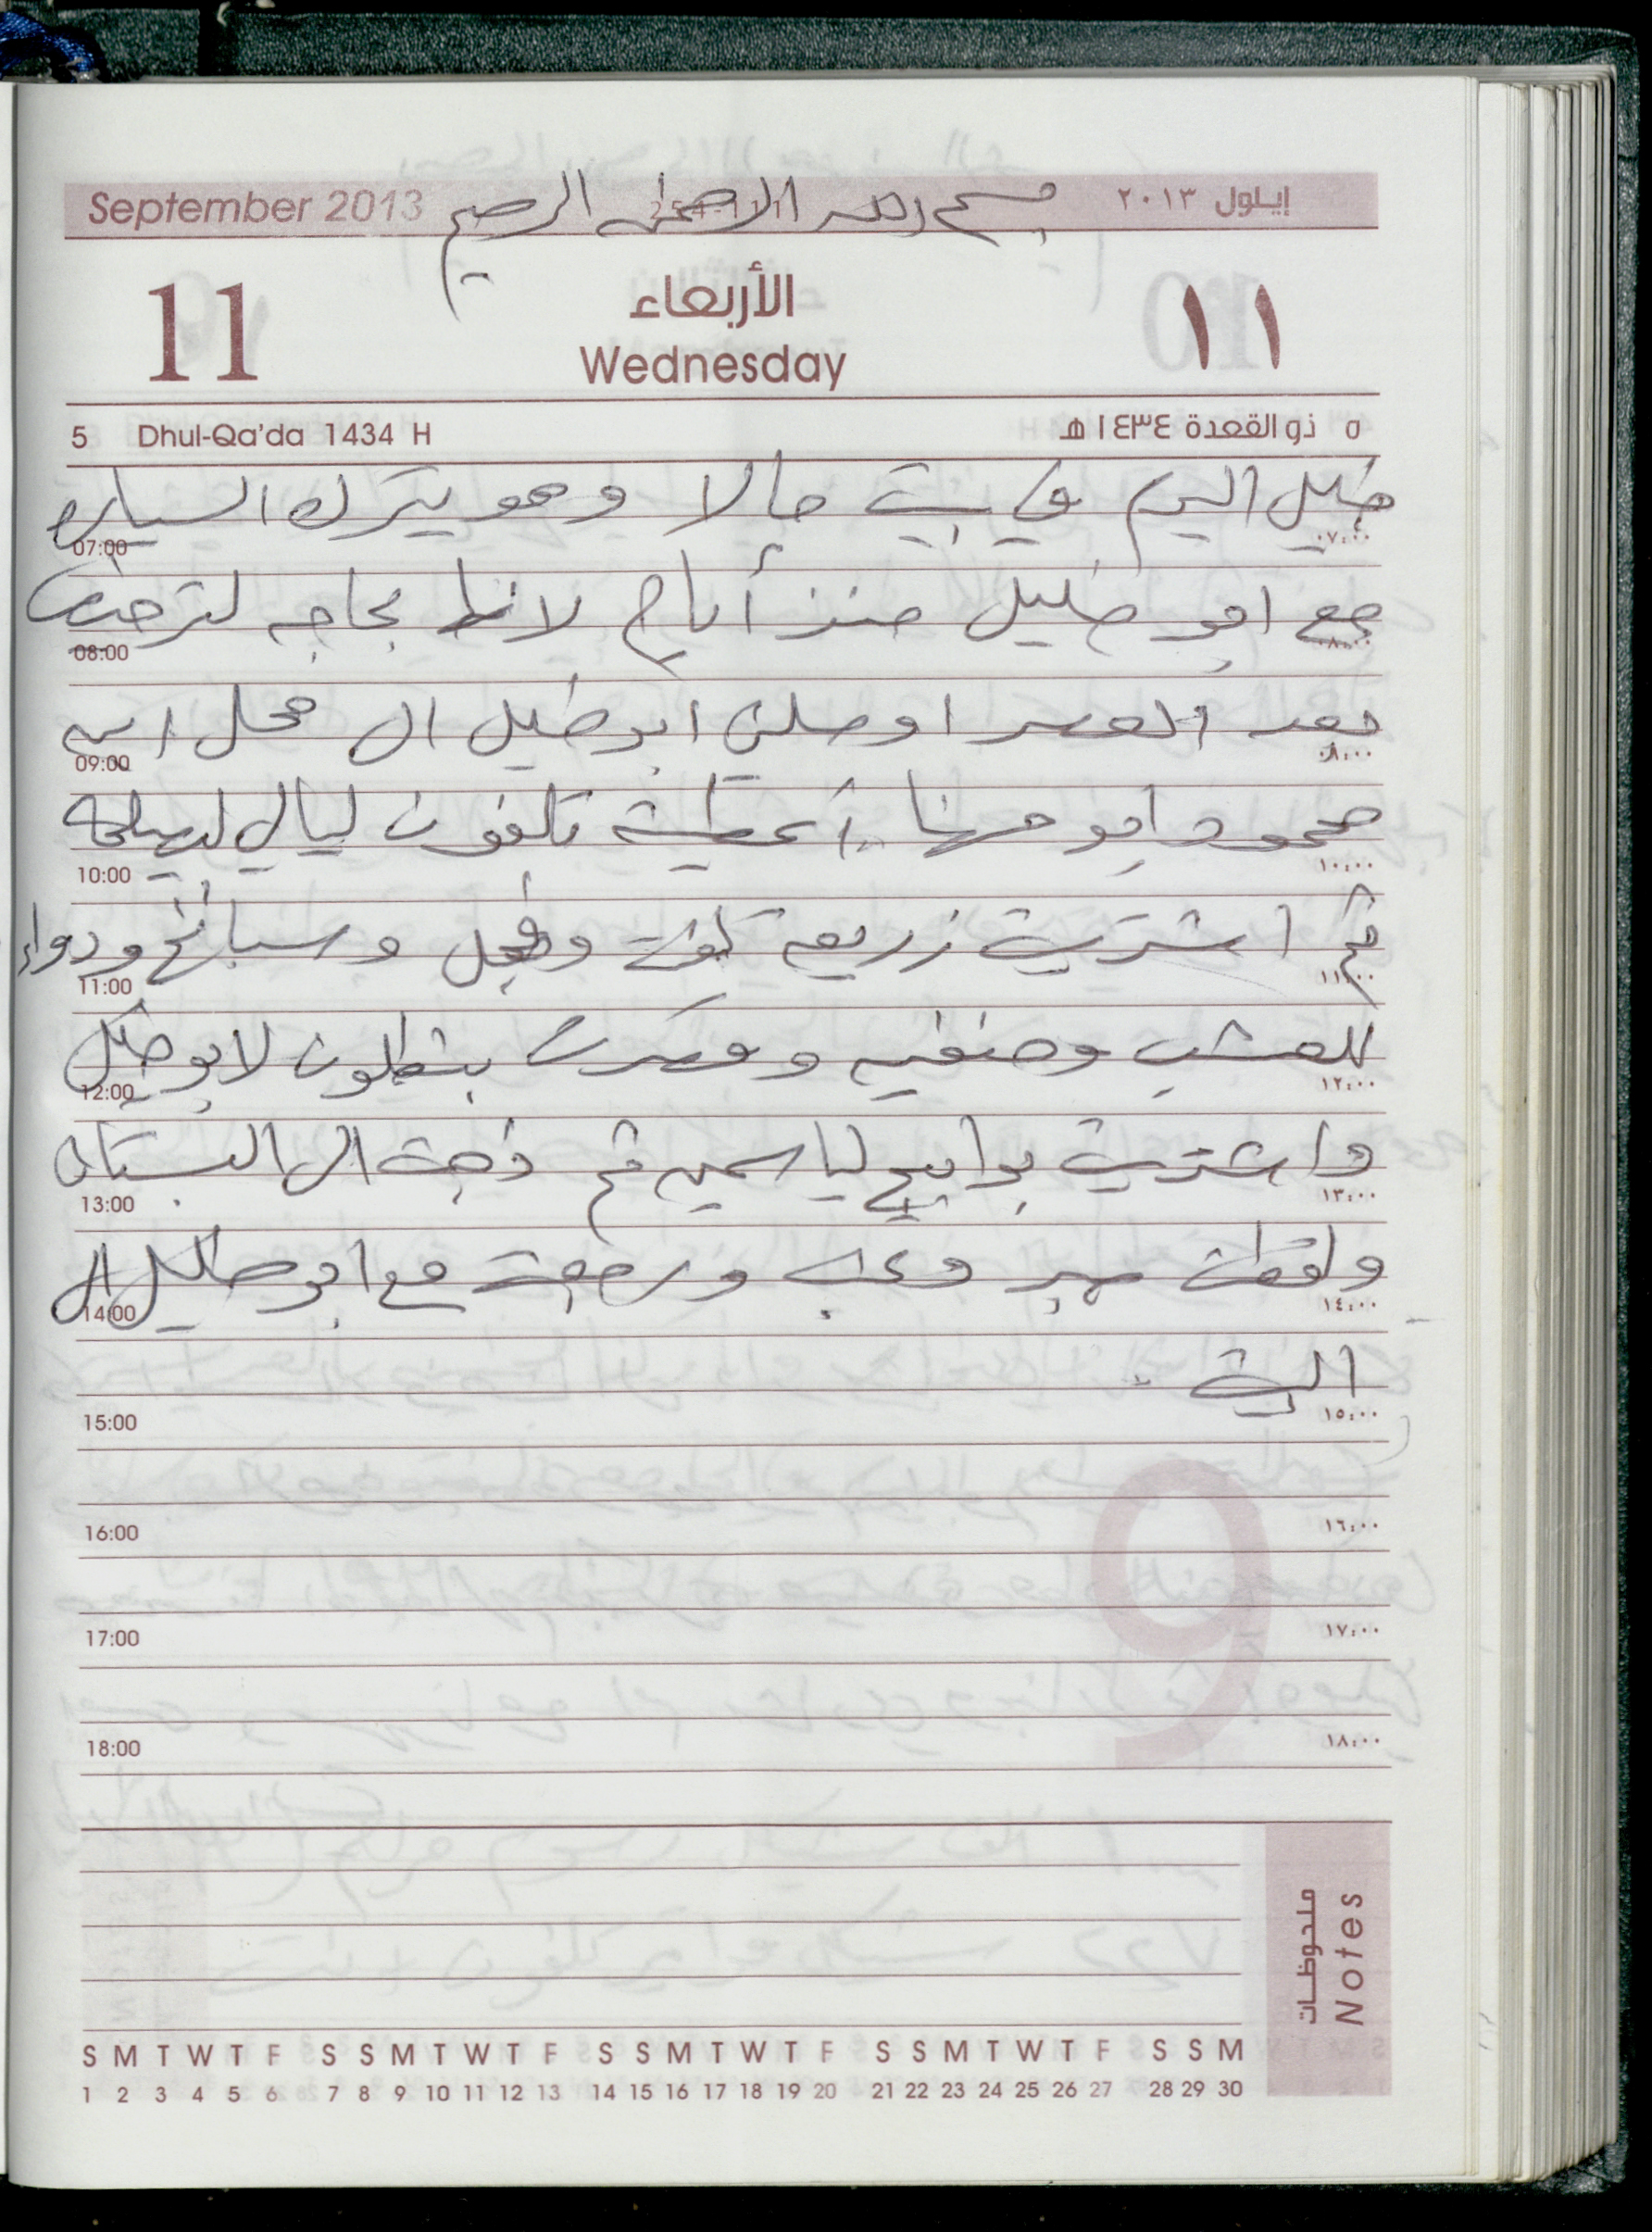 September 2013 بسم الله الرحمن الرحيم إيلول ٢٠١٣
11 الأربعاء ١١
Wednesday
5 Dhul-Qa'da 1434 H ٥ ذو القعدة ١٤٣٤ هـ
خليل اليوم في بيت حالا وهو يترك السياره
07:00 ٠٧:٠٠
مع ابو خليل منذ أيام لانها بحاجه
08:00 ٠٨:٠٠
بعد العصر اوصلني ابو خليل الى محل ابن
09:00
محمود ابو مهنا أعطيته تلفون ليالي ليصلحه
10:00 ١٠:٠٠
ثم اشتريت زريعه لفت وفجل وسبانخ ودواء
11:00 ١١:٠٠
للعشب وحنفيه وقصرت بنطلون لابو خليل
12:00 ١٢:٠٠
واشتريت بوابيج لياسمين ثم ذهبت الى البستان
13:00 ١٣:٠٠
ولقطت صبر وعنب ورجعت مع ابو خليل الى
14:00 ١٤:٠٠
البيت .
15:00 ١٥:٠٠
16:00 ١٦:٠٠
17:00 ١٧:٠٠
18:00 ١٨:٠٠
ملحوظات
Notes
S M T W T F S S M T W T F S S M T W T F S S M T W T F S S M
1 2 3 4 5 6 7 8 9 10 11 12 13 14 15 16 17 18 19 20 21 22 23 24 25 26 27 28 29 30